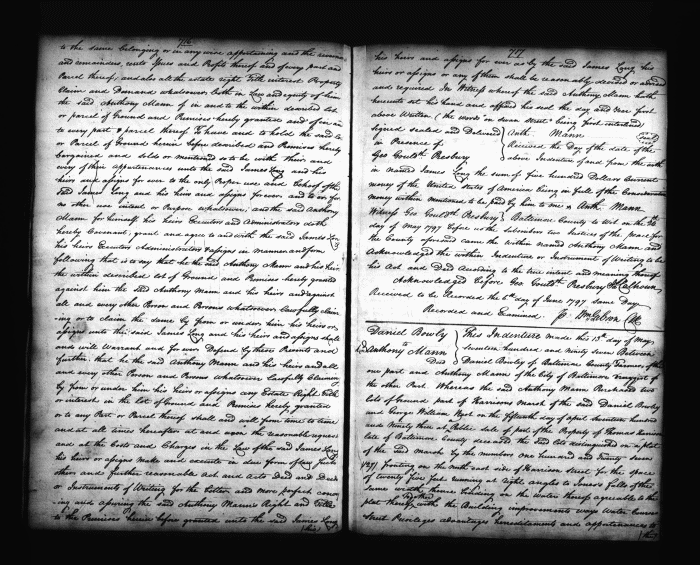 716
to the same belonging or in any wise appertaining and the
and remainders, rents Issues and Profits thereof and of every part and
Parcel thereof, and also all the estate right, Title interest Property
Claim and Demand whatsoever both in Law and equity of him
the said Anthony Mann of in and to the within described lot
or parcel of Ground and Premises hereby granted and of in and
to every part & parcel thereof To have and to hold the said lot
or Parcel of Ground herein before described and Premises hereby
bargained and sold or mentioned so to be with their and
every of their appurtenances unto the said James Long and his
heirs and assigns for ever to the only Proper use and Behoof of the
said James Long and his heirs and assigns forever and to or for
no other use intent or Purpose whatsoever, and the said Anthony
Mann for himself his heirs Executors and Administrators doth
hereby Covenant, grant and agree to and with the said James Long
his heirs Executors Administrators & assigns in manner and form
following that is to say that he the said Anthony Mann and his heirs
the within described lot of Ground and Premises hereby granted
against him the said Anthony Mann and his heirs and against
all and every other Person and Persons whatsoever Lawfully claim
ing or to claim the same by from or under him his heirs or
assigns unto the said James Long and his heirs and assigns shall
and will Warrant and for ever Defend by these Presents and
further that he the said Anthony Mann and his heirs and all
and every other Person and Persons whatsoever Lawfully Claiming
by from or under him his heirs or assigns any Estate Right Title
or interest in the lot of Ground and Premises hereby granted
or to any Part or Parcel thereof shall and will from time to time
and at all times hereafter at and upon the reasonable request
and at the Costs and Charges in the Law of the said James Long
his heirs or assigns make and execute in due form of Law such
other and further reasonable act and acts Deed and Deeds
or Instruments of Writing for the better and more perfect convey
ing and assuring the said Anthony Manns Right and Title
to the Premises herein before granted unto the said James Long
his
717
his heirs and assigns for ever as by the said James Long his
heirs or assigns or any of them shall be reasonably devised or advised
and required In Witness whereof the said Anthony Mann hath
hereunto set his hand and affixed his seal the day and Year first
above Written (the words on seven street being first interlined
Signed sealed and Delivered Anth. Mann Seal
in Presence of Received the Day of the date of the
Geo Gouldh Presbury above Indenture of and from the with
in named James Long the sum of five hundred Dollars Current
money of the United States of America being in full of the Consideration
money within mentioned to be paid by him to me & Anth. Mann
Witness Geo Gouldh Presbury Baltimore County to wit on the
day of May 1797 Before us the Subscribers two Justices of the Peace for
the County aforesaid came the within named Anthony Mann and
Acknowledged the within Indenture or Instrument of Writing to be
his Act and Deed According to the true intent and meaning thereof
Acknowledged before Geo Gouldh Presbury Calhoun
Received to be Recorded the 6th June 1797 same Day
Recorded and Examined Wm Gibson Clk
Daniel Bowly This Indenture made this 15th day of May
to Seventeen hundred and ninety seven Between
Anthony Mann Daniel Bowly of Baltimore County Farmer of the
Deed
one part and Anthony Mann of the City of Baltimore of
the other Part. Whereas the said Anthony Mann Purchased two
lots of Ground part of Harrisons Marsh of the said Daniel Bowly
and George William on the fifteenth day of April seventeen hundred
and Ninety three at Public sale of part of the Property of Thomas
late of Baltimore County deceased the said lots distinguished on a plat
of the said Marsh by the numbers one hundred and Twenty seven
(127) fronting on the north east side of Harrison street for the space
of twenty five feet running at right angles to Jones's falls of the
same width thence binding on the Water thereof agreeable to the
plat thereof Together with the Building improvements ways Water Courses
Priviledges advantages hereditaments and appurtenances to